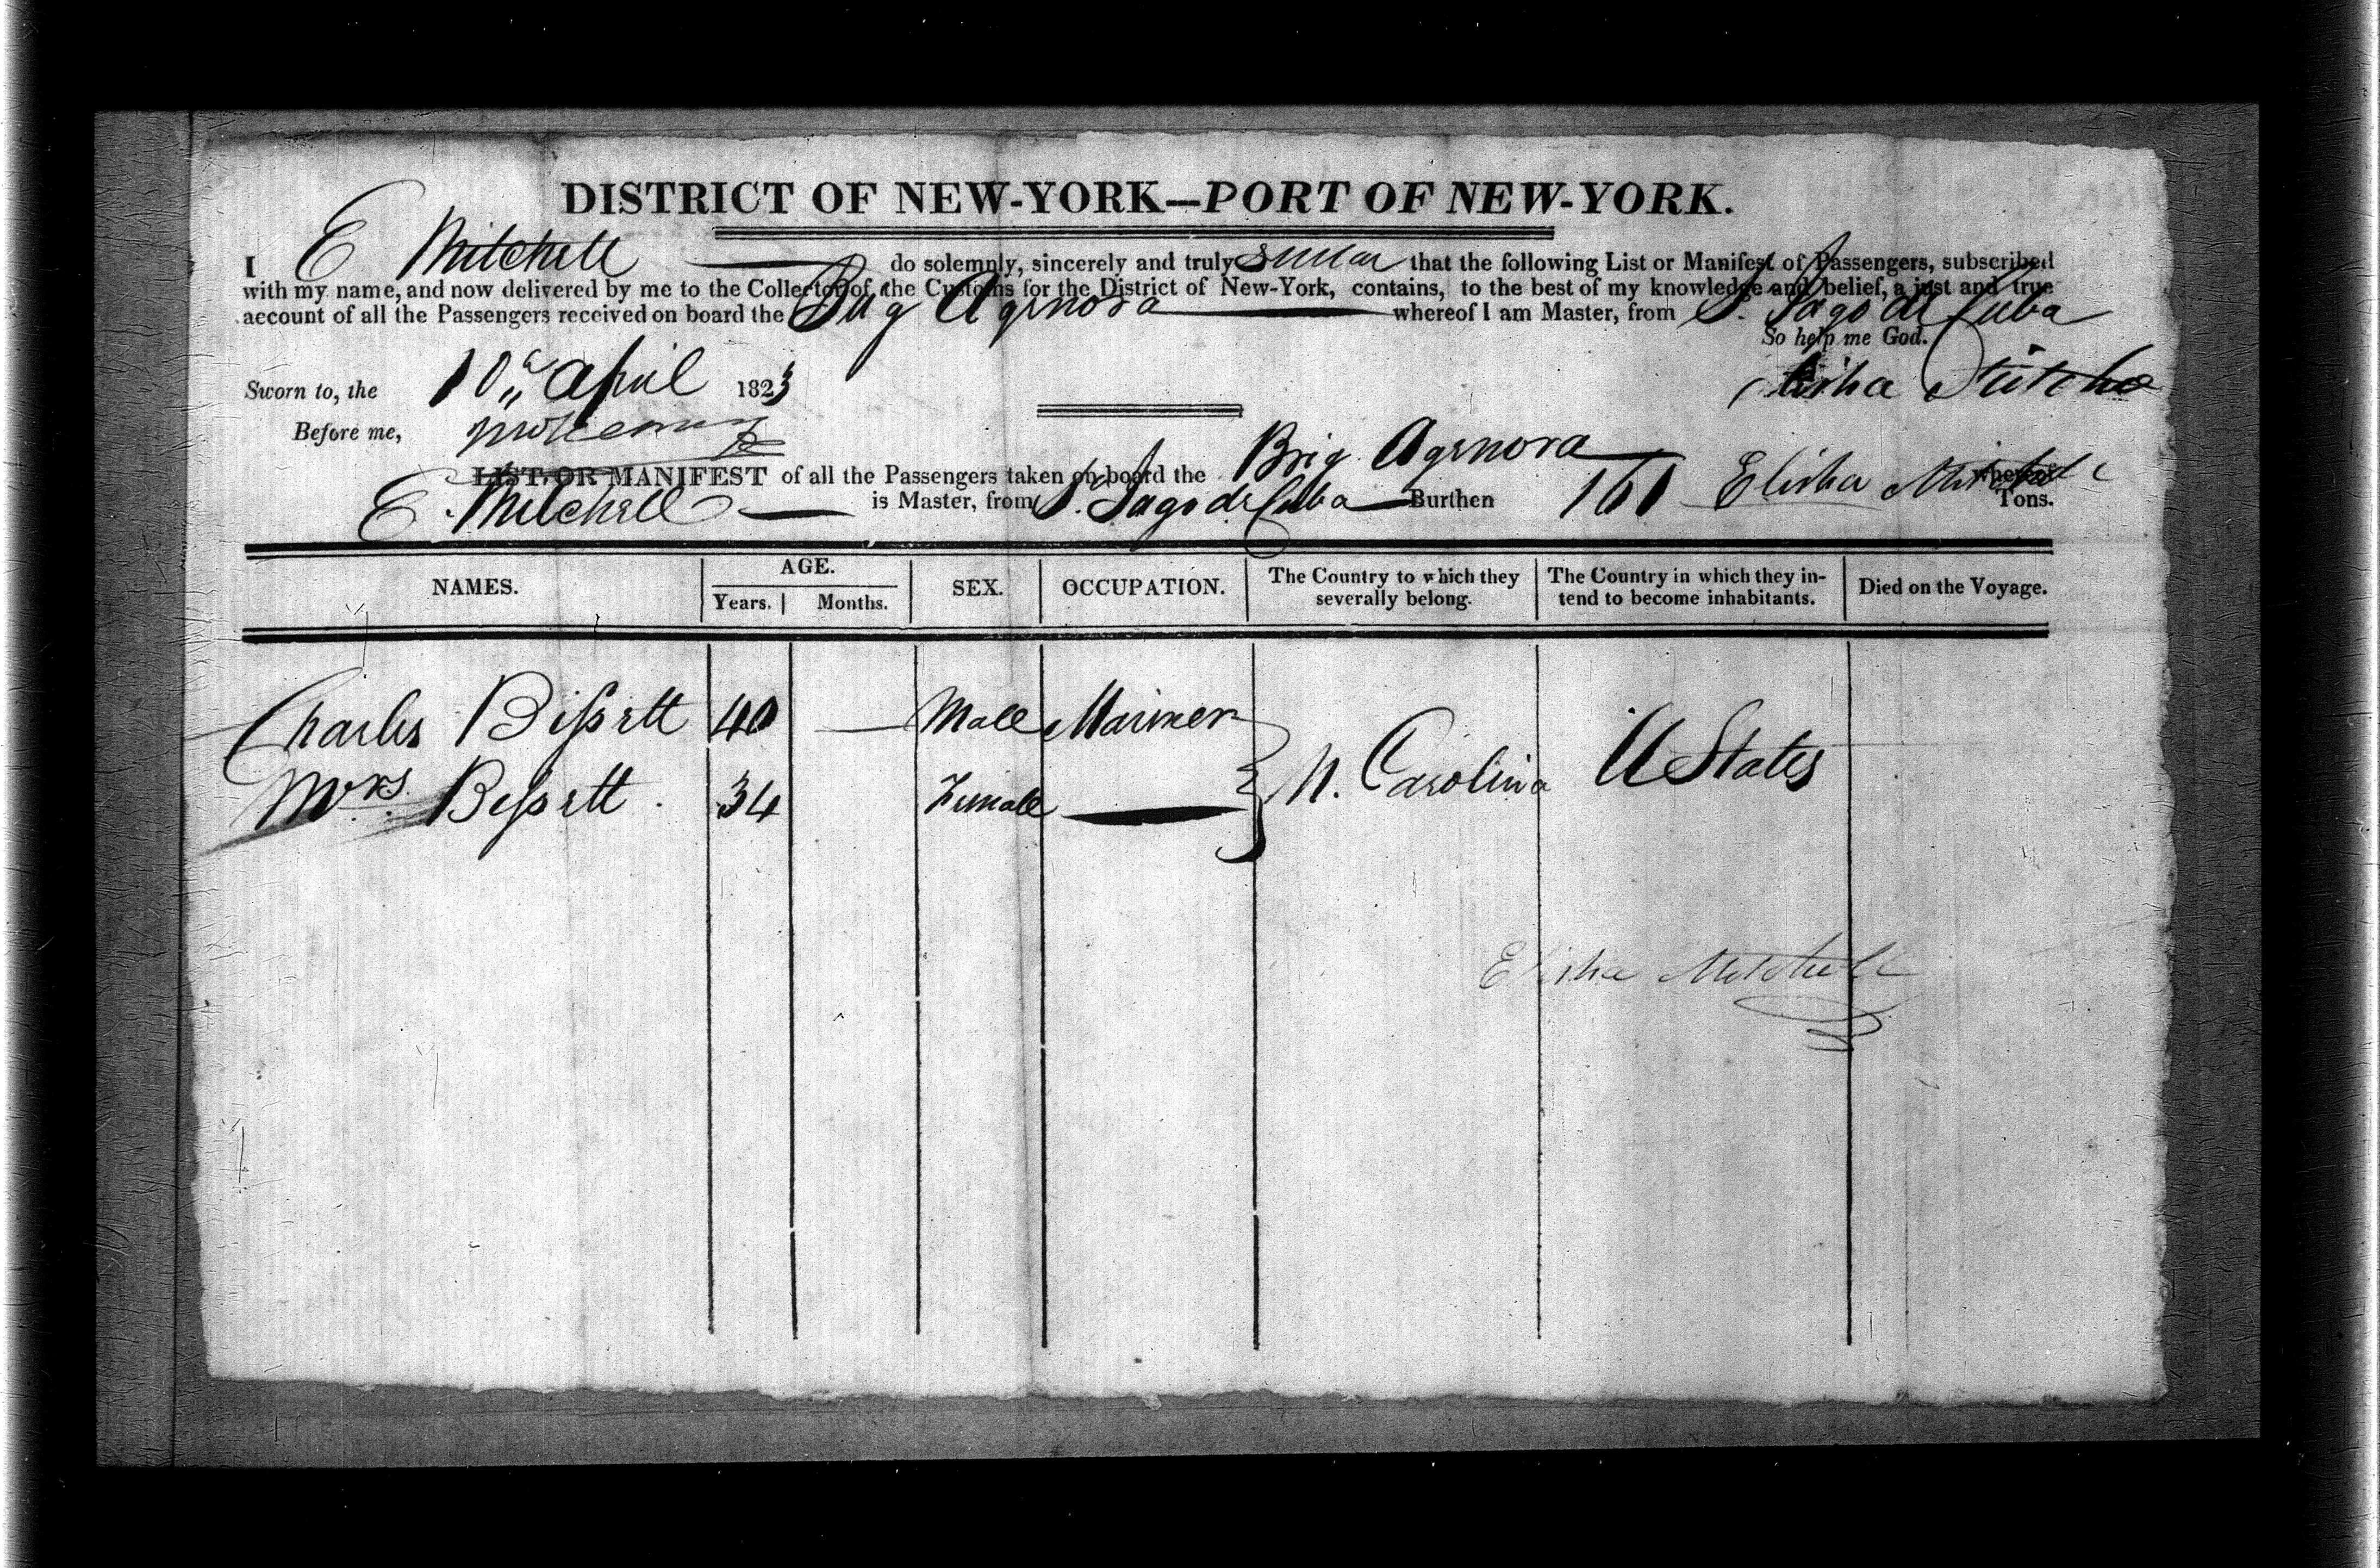 DISTRICT OF NEW-YORK—PORT OF NEW-YORK.
I E Mitchell do solemnly, sincerely and truly swear that the following List or Manifest of Passengers, subscribed
with my name, and now delivered by me to the Collector of the Customs for the District of New-York, contains, to the best of my knowledge and belief, a just and true
account of all the Passengers received on board the Brig Agenora whereof I am Master, from S. Jago de Cuba
So help me God.
Sworn to, the 10th April 1823
Elisha
Before me,
LIST OR MANIFEST of all the Passengers taken on board the Brig Agenora whereof
E. Mitchell is Master, from S. Jago de Cuba Burthen 161 Tons.
Elisha Mitchell
NAMES. AGE. SEX. OCCUPATION. The Country to which they severally belong. The Country in which they intend to become inhabitants. Died on the Voyage.
Years. Months.
Charles Bissett 40 — Male Mariner
N. Carolina U States
Mrs. Bessett 34 Female —
Elisha Mitchell